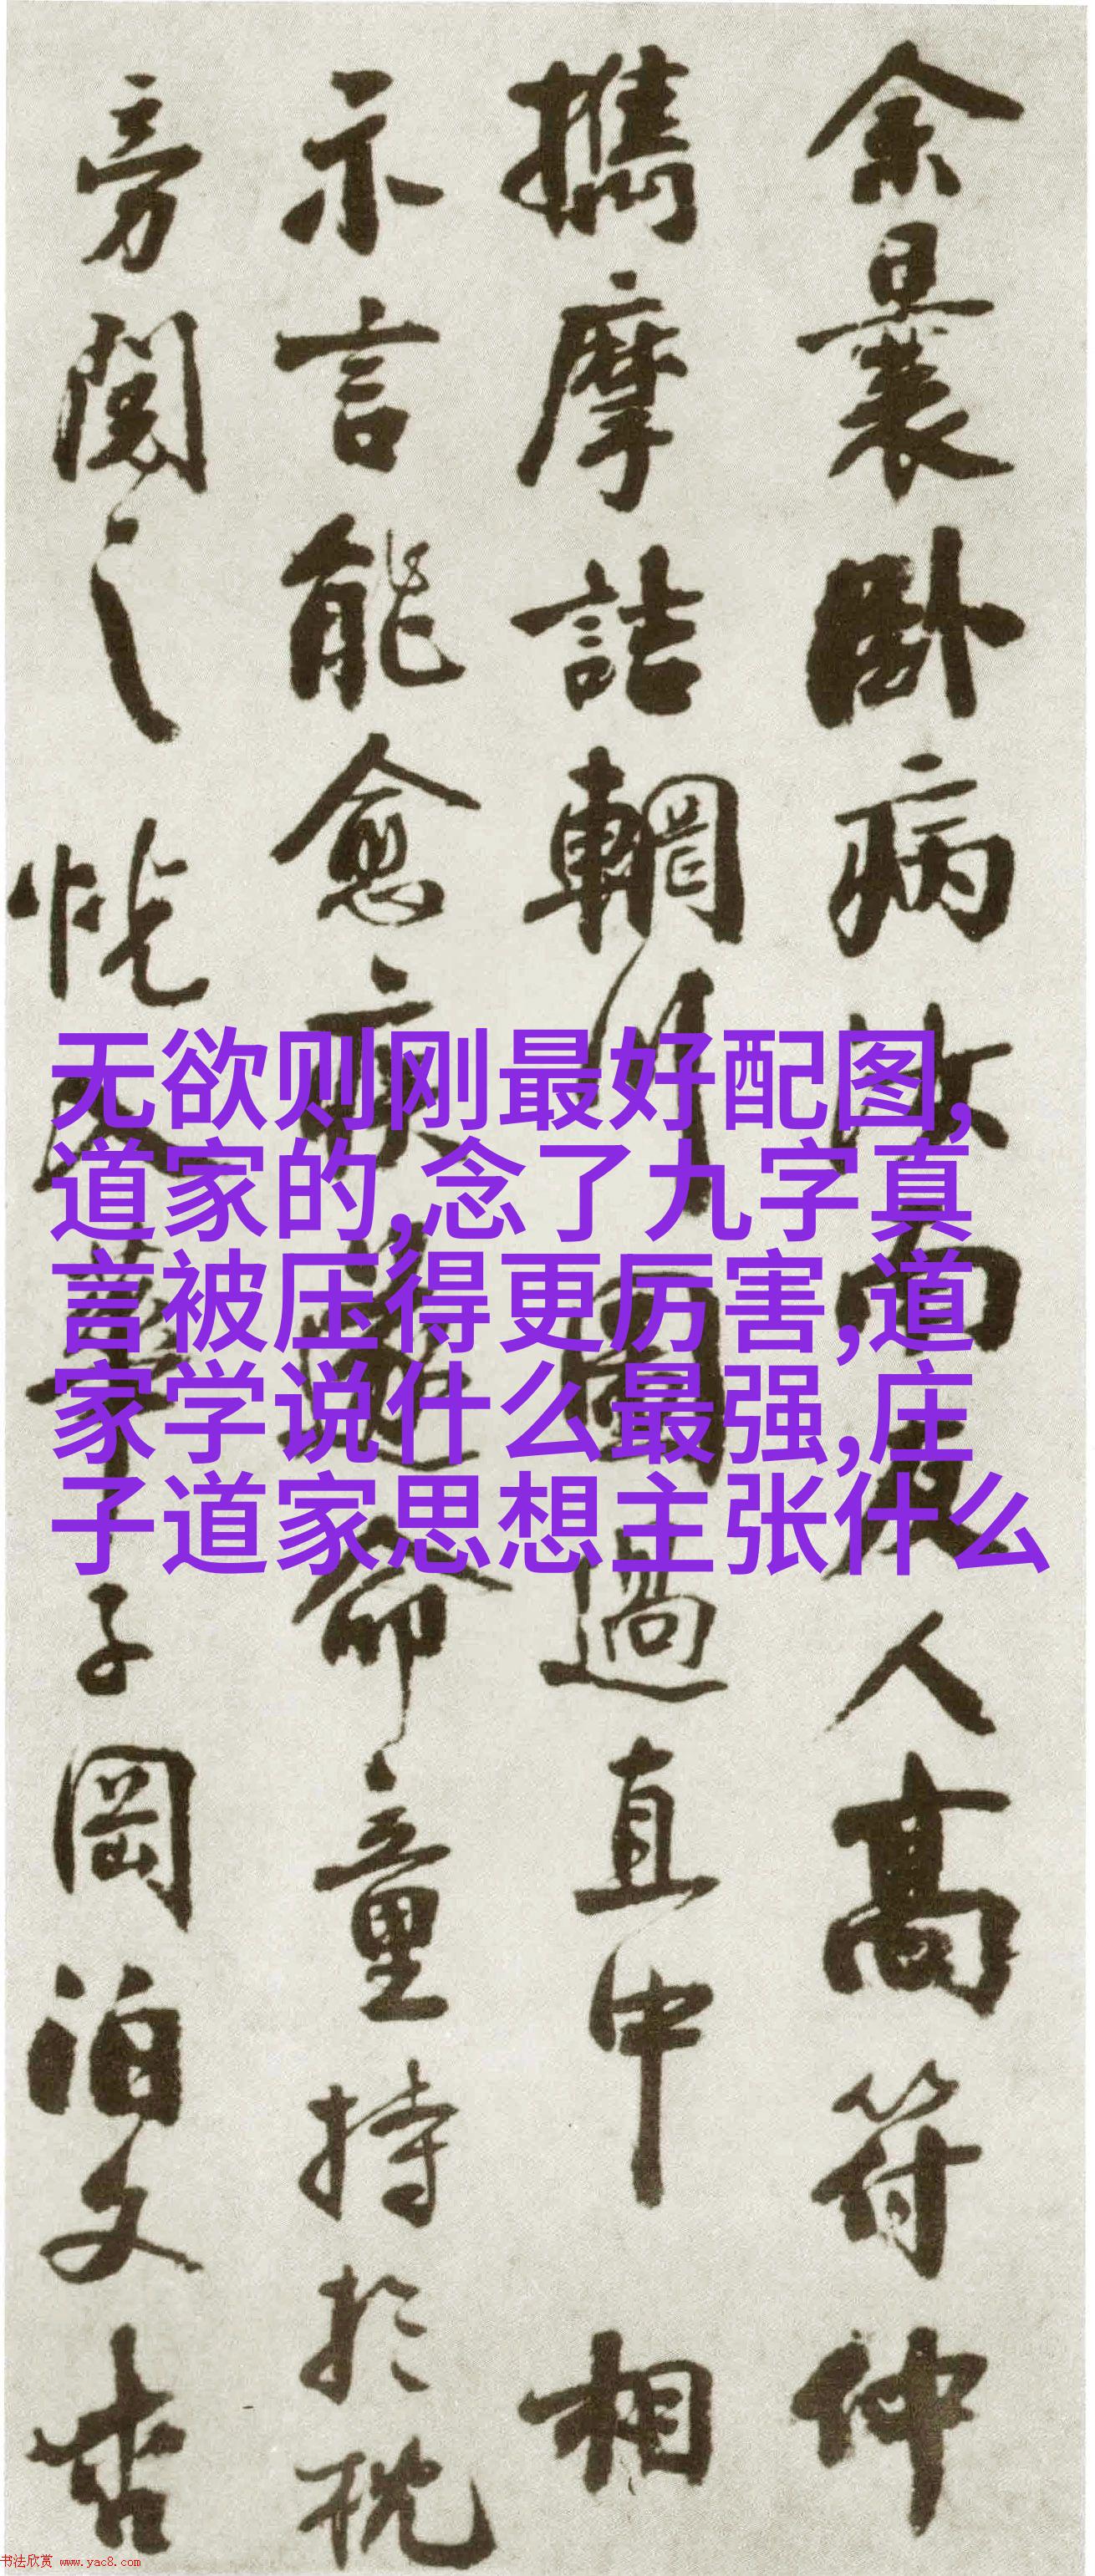 余曩卧病汝南友人高符仲
攜摩詰輞川圖過直中相
示言能愈疾遂命童持於枕
旁閱之恍入華子岡泊文杏
无欲则刚最好配图,
道家的,念了九字真
言被压得更厉害,道
家学说什么最强,庄
子道家思想主张什么
书法欣赏 www.yac8.com